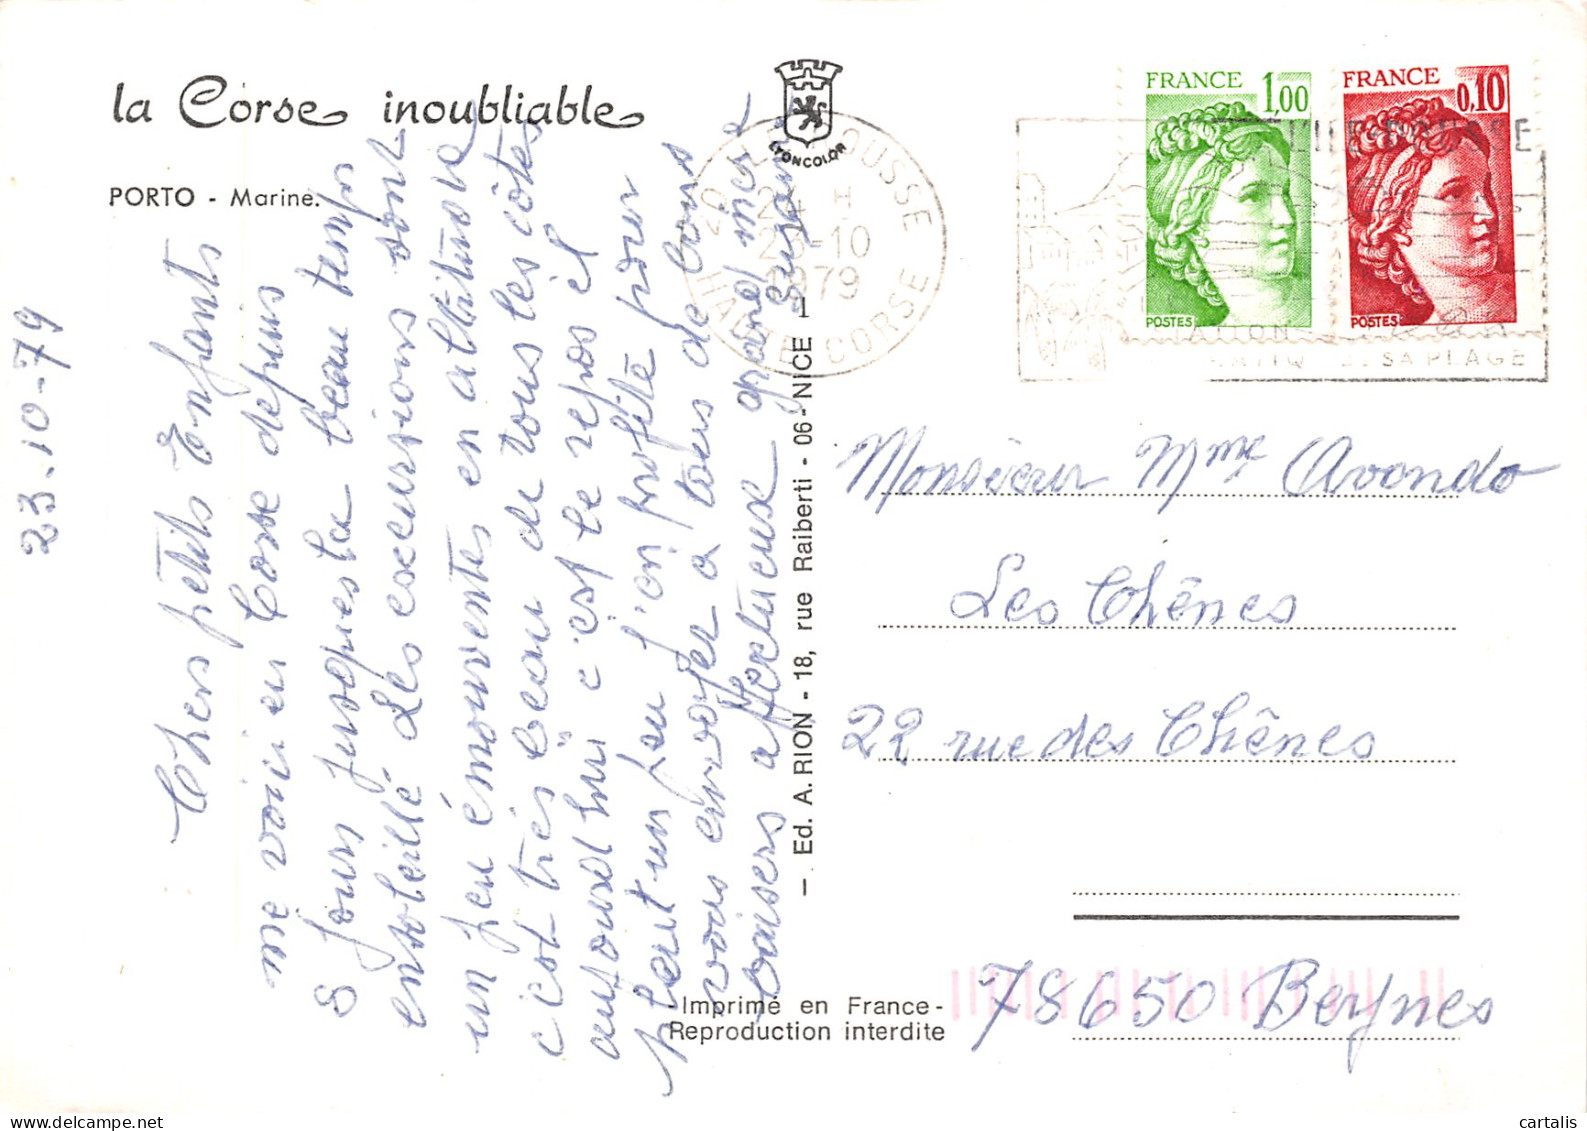 la Corse inoubliable
PORTO - Marine.
LYONCOLOR
23-10-79
Chers petits Enfants
me voici en Corse depuis
8 jours jusque là beau temps
ensoleillé Les excursions sont
un peu émouventes en altitude
c'est très beau du tous les côtés
aujourd'hui c'est le repos il
pleut un peu j'en profite pour
vous envoyer à tous de bons
baisers affectueux grand mère
Susanne
- Ed. A. RION - 18, rue Raiberti - 06 - NICE 1
-Imprimé en France-
Reproduction interdite
FRANCE 1,00
POSTES
FRANCE 0,10
POSTES
20 L'ILE ROUSSE
24 H
23-10
1979
HAUTE CORSE
L'ILE-ROUSSE
SA PLAGE
Monsieur Mme Avondo
Les Chênes
22 rue des Chênes
78650 Beynes
www.cartalis.com